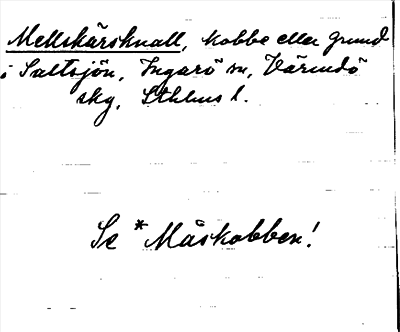 Mellskärsknall, kobbe eller grund
i Saltsjön, Ingarö sn, Värmdö
skg, Sthlms l.
Se *Måskobben!